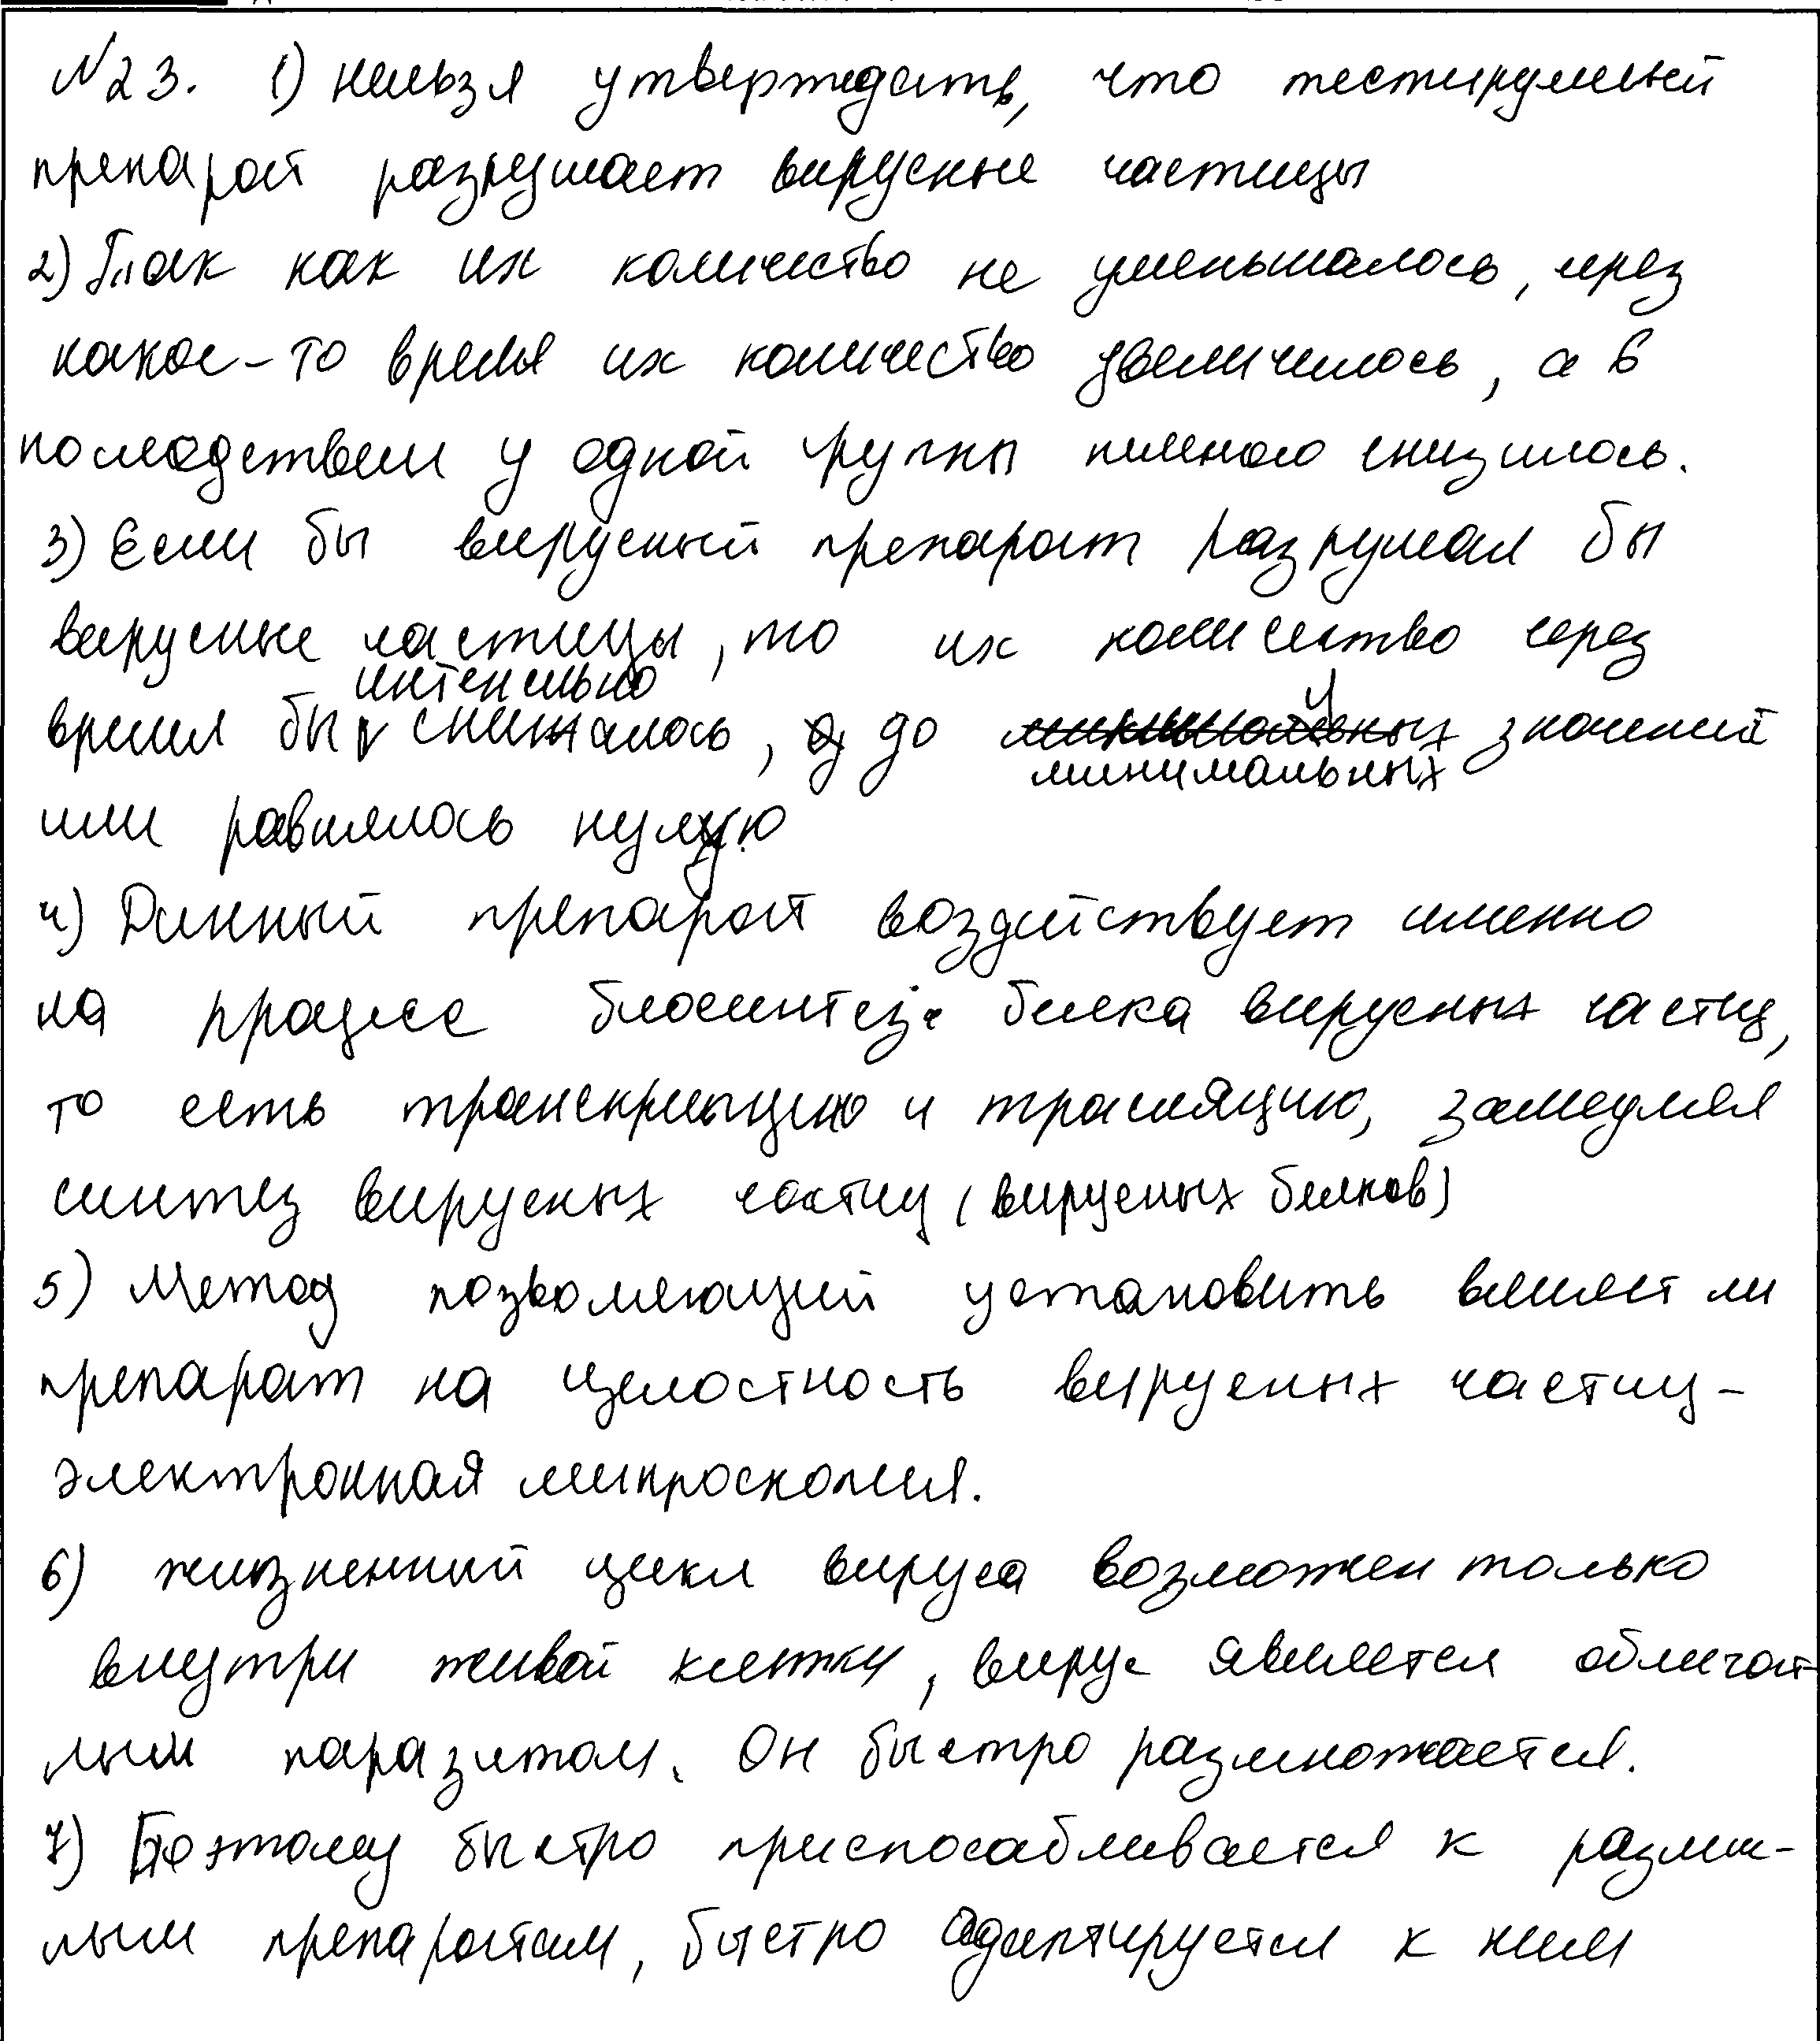 №23. 1) нельзя утверждать, что тестируемый
препарат разрушает вирусные частицы
2) Так как их количество не уменьшалось, через
какое-то время их количество увеличилось, а в
последствии у одной группы немного снизилось.
3) Если бы вирусный препарат разрушал бы
вирусные частицы, то их количество через
время бы интенсивно снижалось, до минимальных значений
или равнялось нулю
4) Данный препарат воздействует именно
на процесс биосинтеза белка вирусных частиц,
то есть транскрипцию и трасляцию, замедляя
синтез вирусных частиц (вирусных белков)
5) Метод позволяющий установить влияет ли
препарат на целостность вирусных частиц -
электронная микроскопия.
6) жизненный цикл вируса возможен только
внутри живой клетки, вирус является облигат
ным паразитом. Он быстро размножается.
7) Поэтому быстро приспосабливается к различ-
ным препаратам, быстро адаптируется к ним